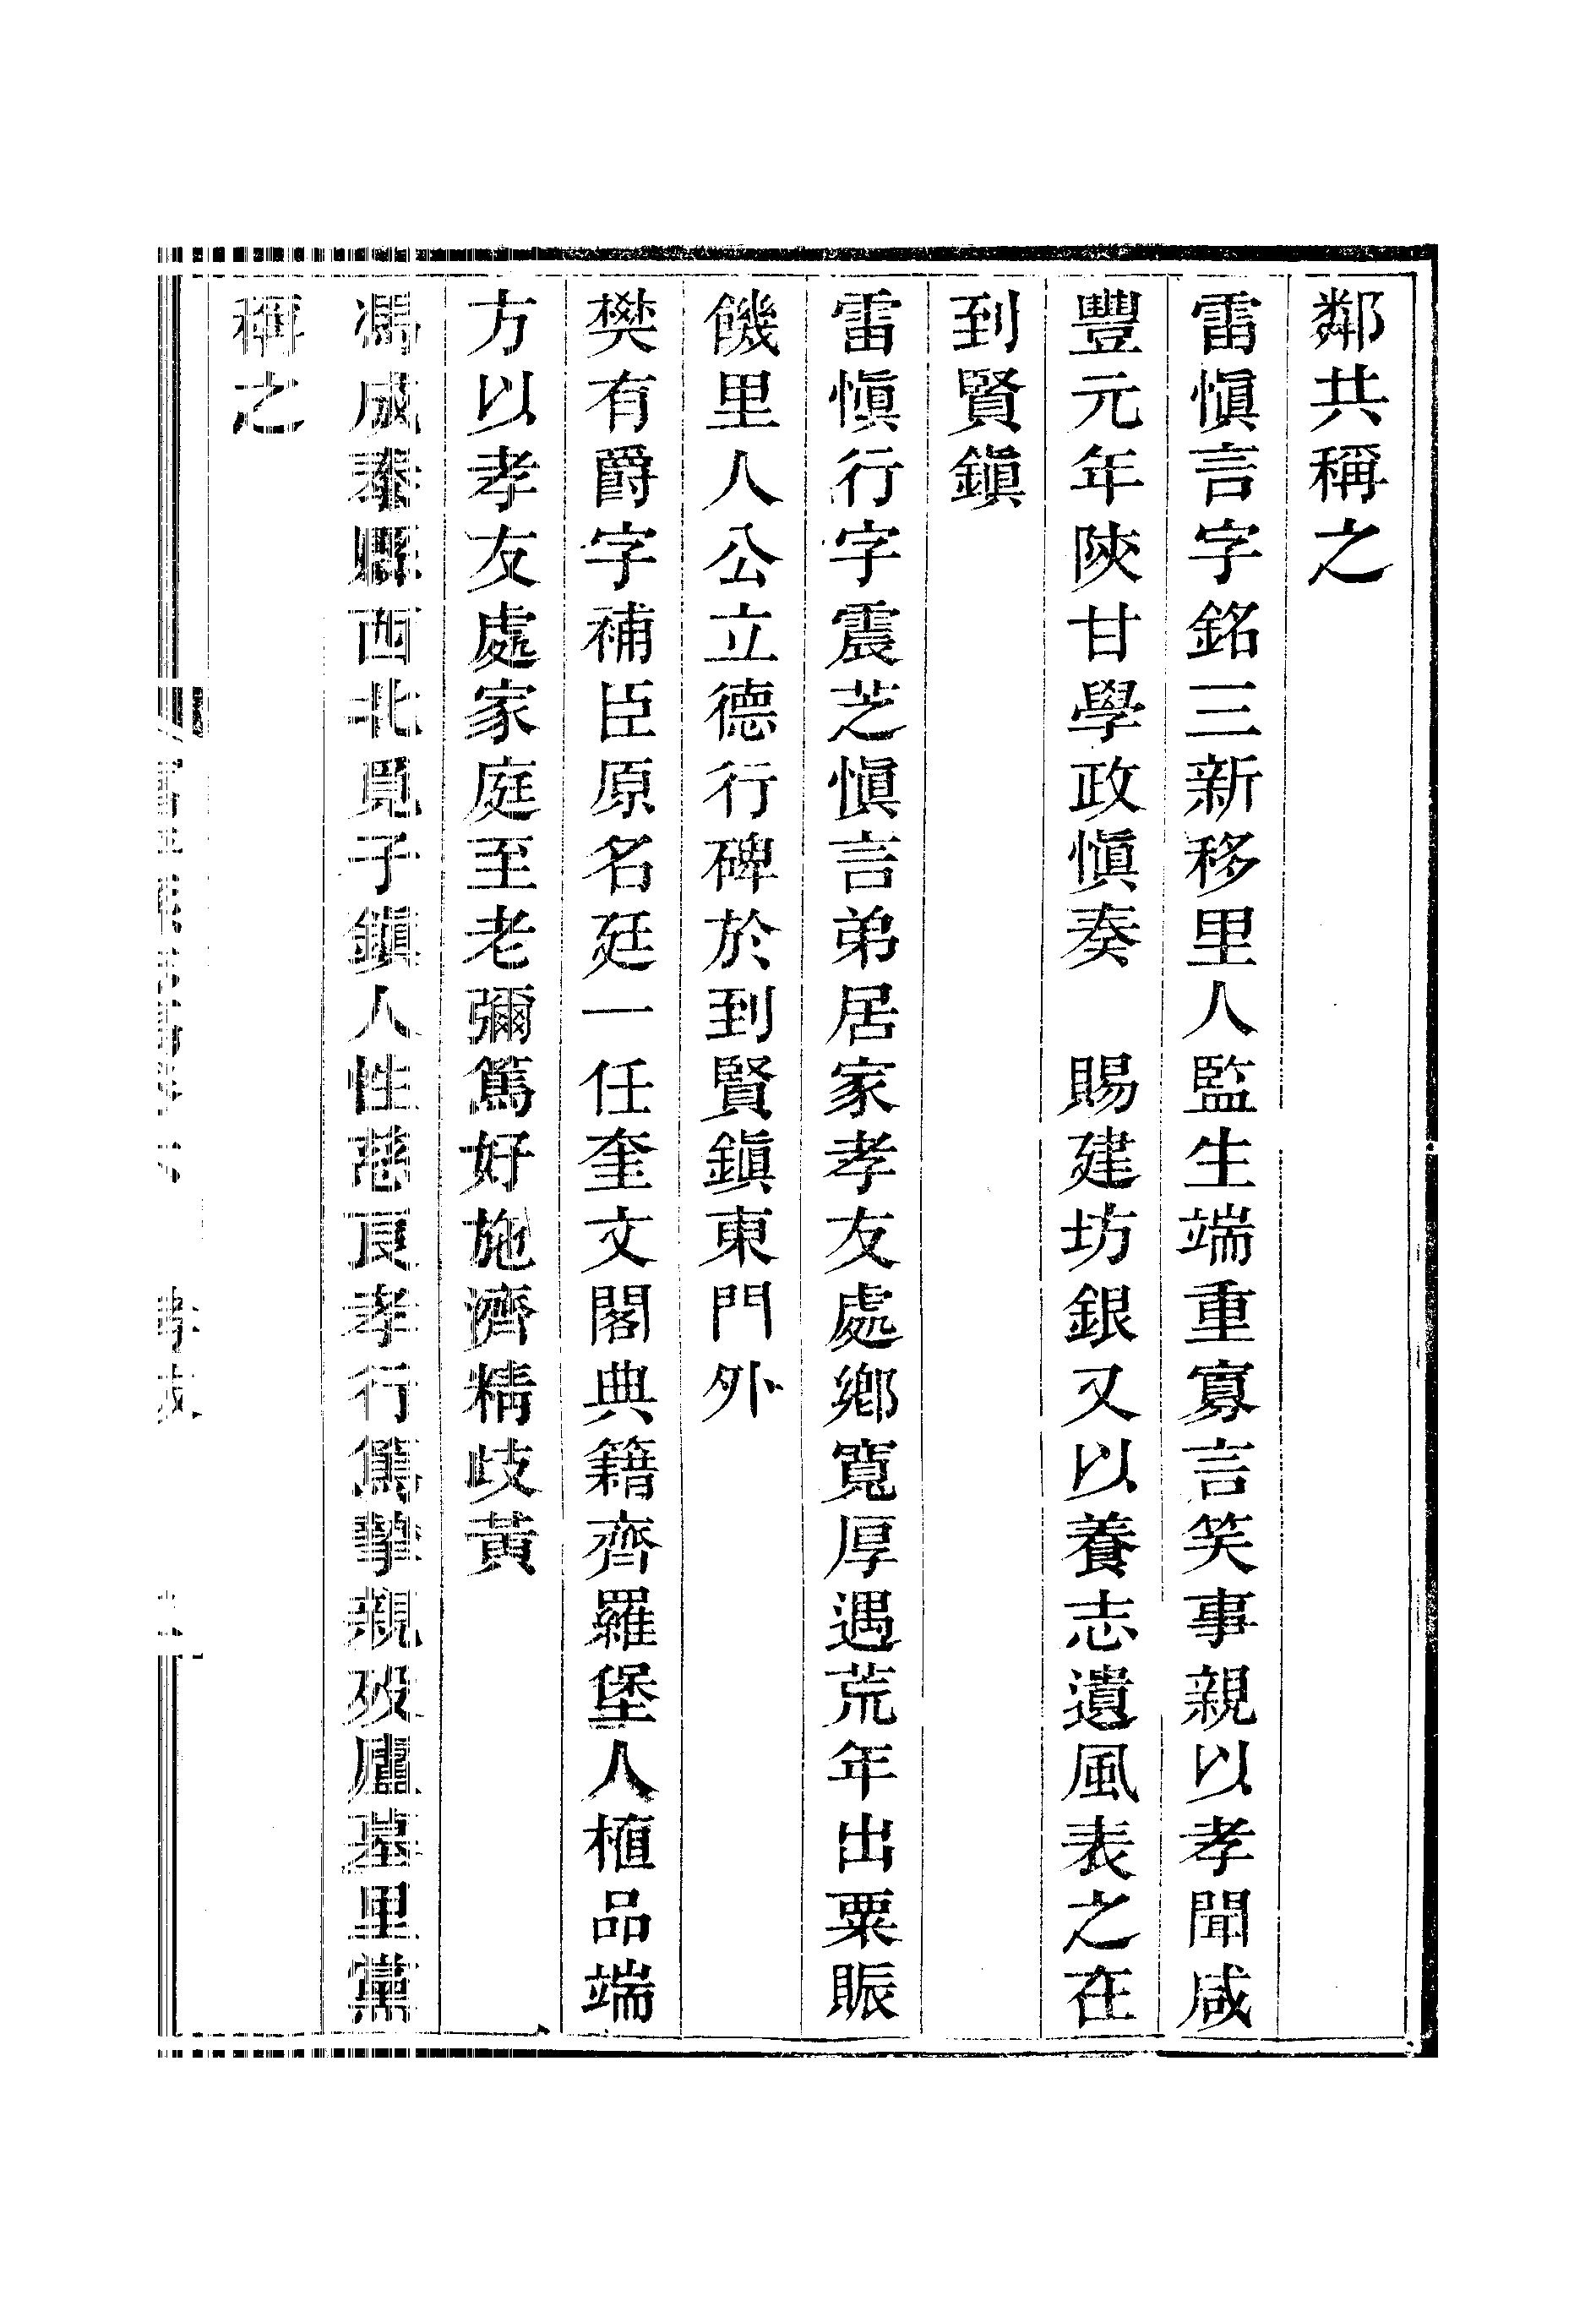 鄰共稱之
雷愼言字銘三新移里人監生端重寡言笑事親以孝聞咸
豐元年陝甘學政愼奏　賜建坊銀又以養志遺風表之在
到賢鎭
雷愼行字震芝愼言弟居家孝友處鄉寬厚遇荒年出粟賑
饑里人公立德行碑於到賢鎭東門外
樊有爵字補臣原名廷一任奎文閣典籍齊羅堡人植品端
方以孝友處家庭至老彌篤好施濟精歧黃
馮成泰縣西北覓子鎭人性慈良孝行篤摯親歿廬墓里黨
稱之